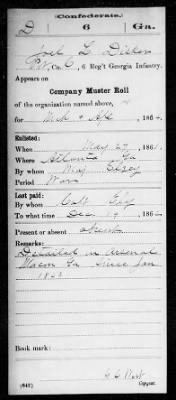 (Confederate.)
D 6 Ga.
Joel L Dicken
Pvt, Co. C, 6 Reg't Georgia Infantry.
Appears on
Company Muster Roll
of the organization named above,
for Mch & Apl, 1864
Enlisted:
When May 27, 1861.
Where Atlanta Ga
By whom Maj
Period War
Last paid:
By whom Capt
To what time Dec 1862
Present or absent absent
Remarks:
Detailed in Arsenal
Macon Ga since Jan
1863
Book mark:
(642)
Copyist.